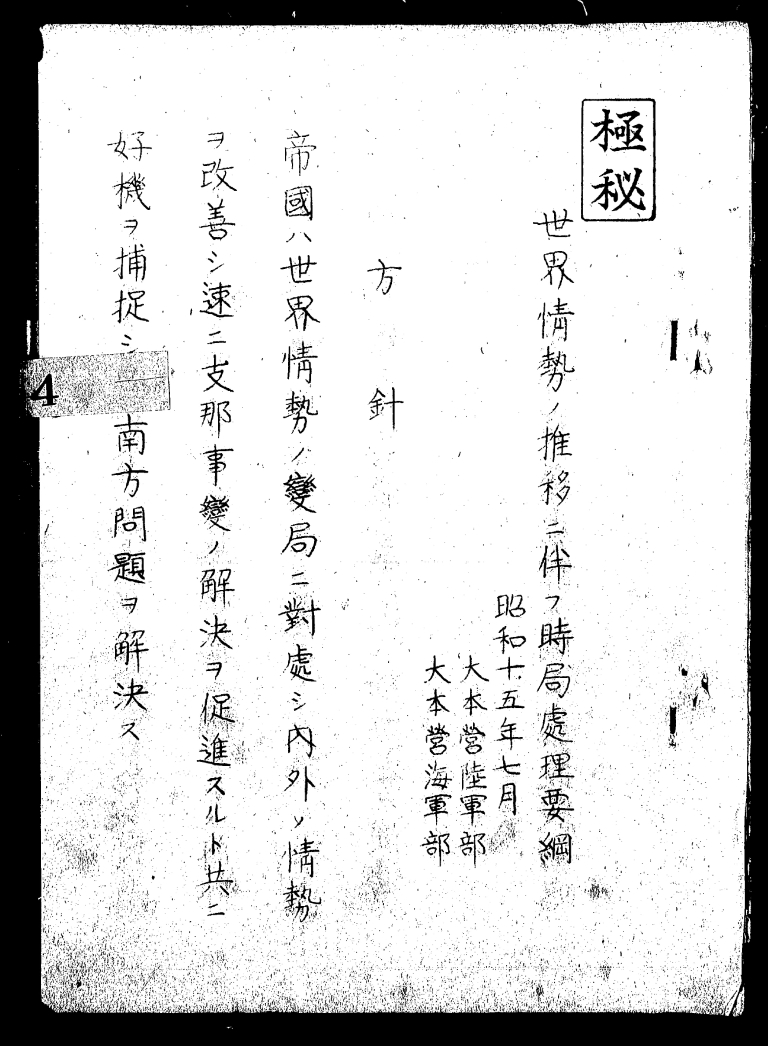 極秘
世界情勢ノ推移ニ伴フ時局處理要綱
昭和十五年七月
大本營陸軍部
大本營海軍部
方針
帝國ハ世界情勢ノ變局ニ對處シ內外ノ情勢
ヲ改善シ速ニ支那事變ノ解決ヲ促進スルト共ニ
好機ヲ捕捉シ南方問題ヲ解決ス
4